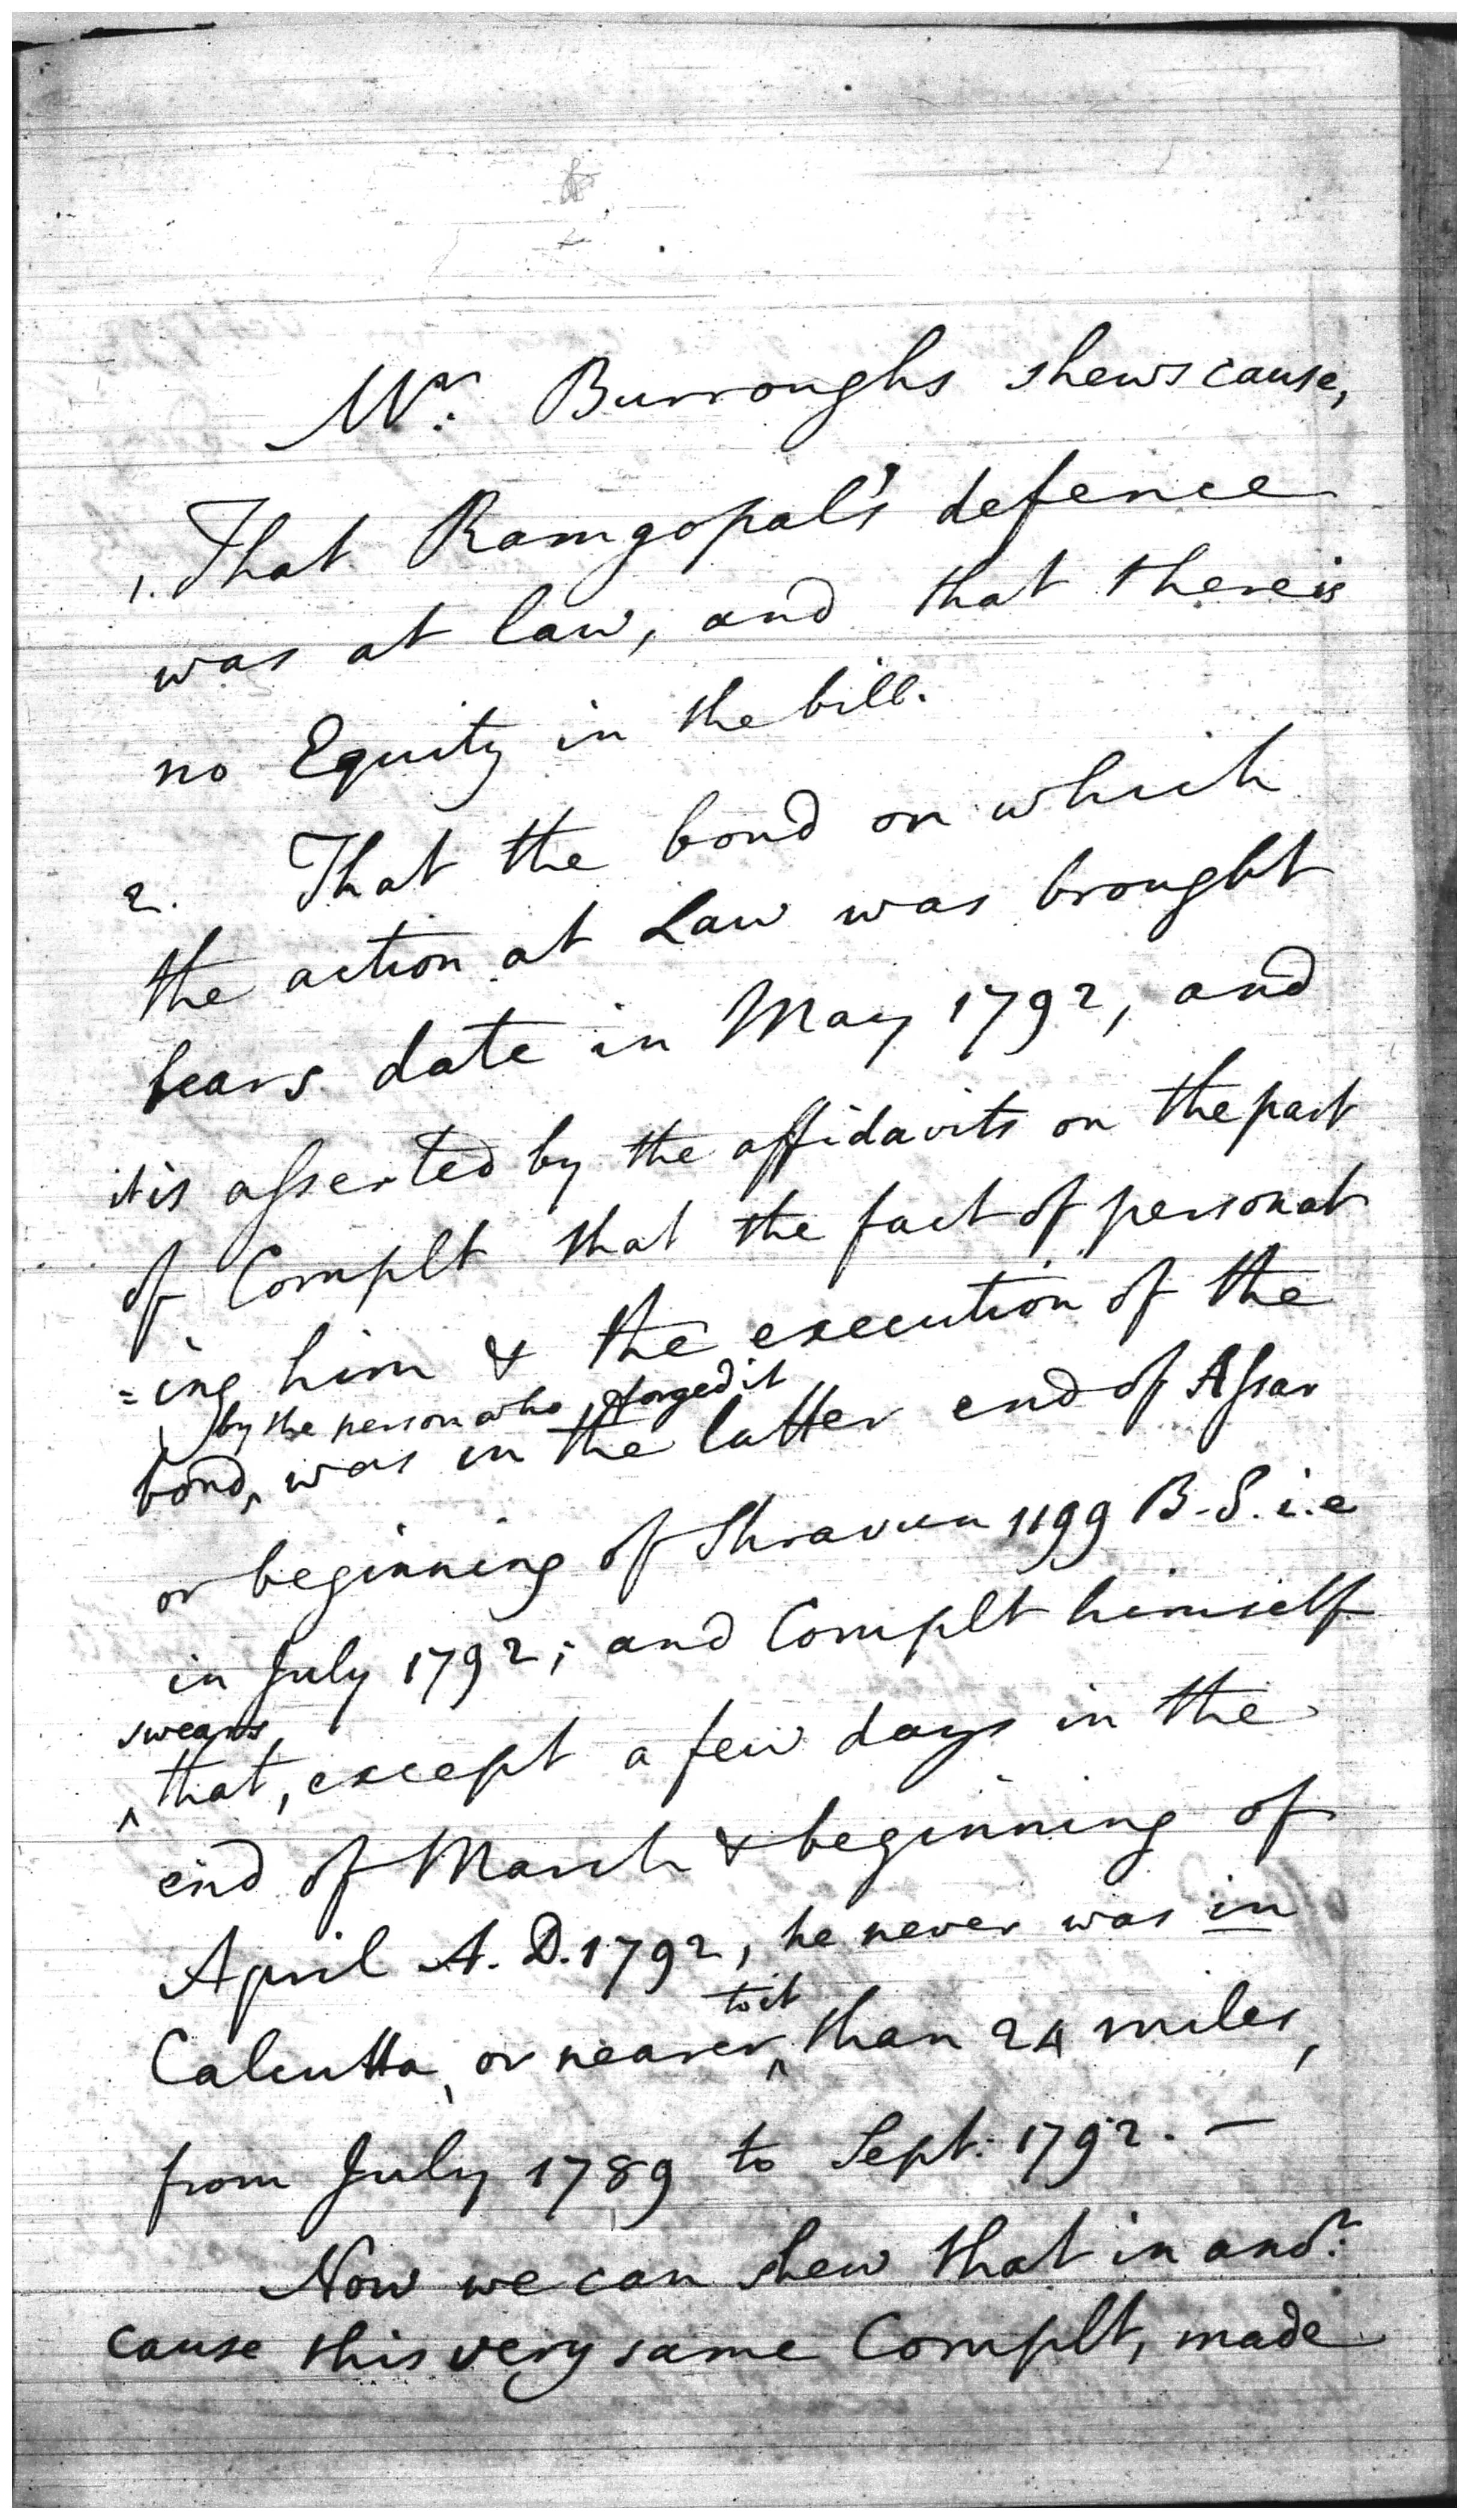 Mr. Burroughs shews cause,
1. That Ramgopal's defence
was at law, and that there is
no Equity in the bill.
2. That the bond on which
the action at Law was brought
bears date in May 1792, and
it is asserted by the affidavits on the part
of Complt that the fact of personat
=ing him & the execution of the
by the person who forged it
bond, was in the latter end of Assar
or beginning of Shravun 1199 B.S. i.e
in July 1792; and Complt himself
swears
that, except a few days in the
end of March & beginning of
April A.D. 1792, he never was in
to it
Calcutta, or nearer than 24 miles,
from July 1789 to Sept: 1792. —
Now we can shew that in anor:
cause this very same Complt, made